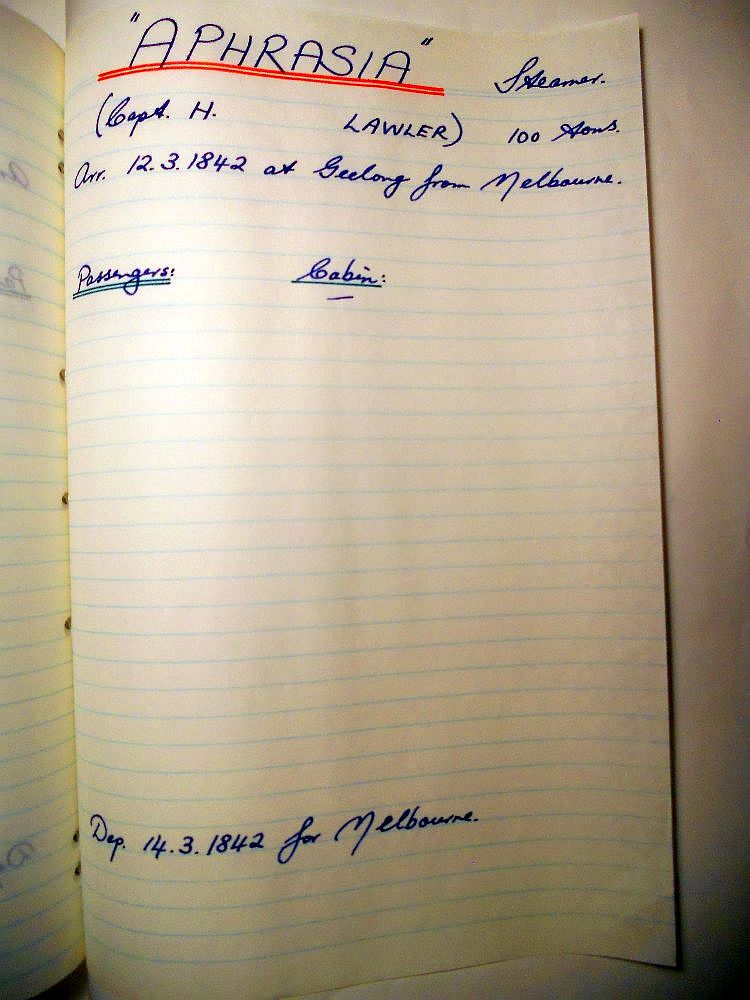 "APHRASIA" Steamer.
(Capt. H. LAWLER) 100 tons.
Arr. 12.3.1842 at Geelong from Melbourne.
Passengers: Cabin:
—
Dep. 14.3.1842 for Melbourne.